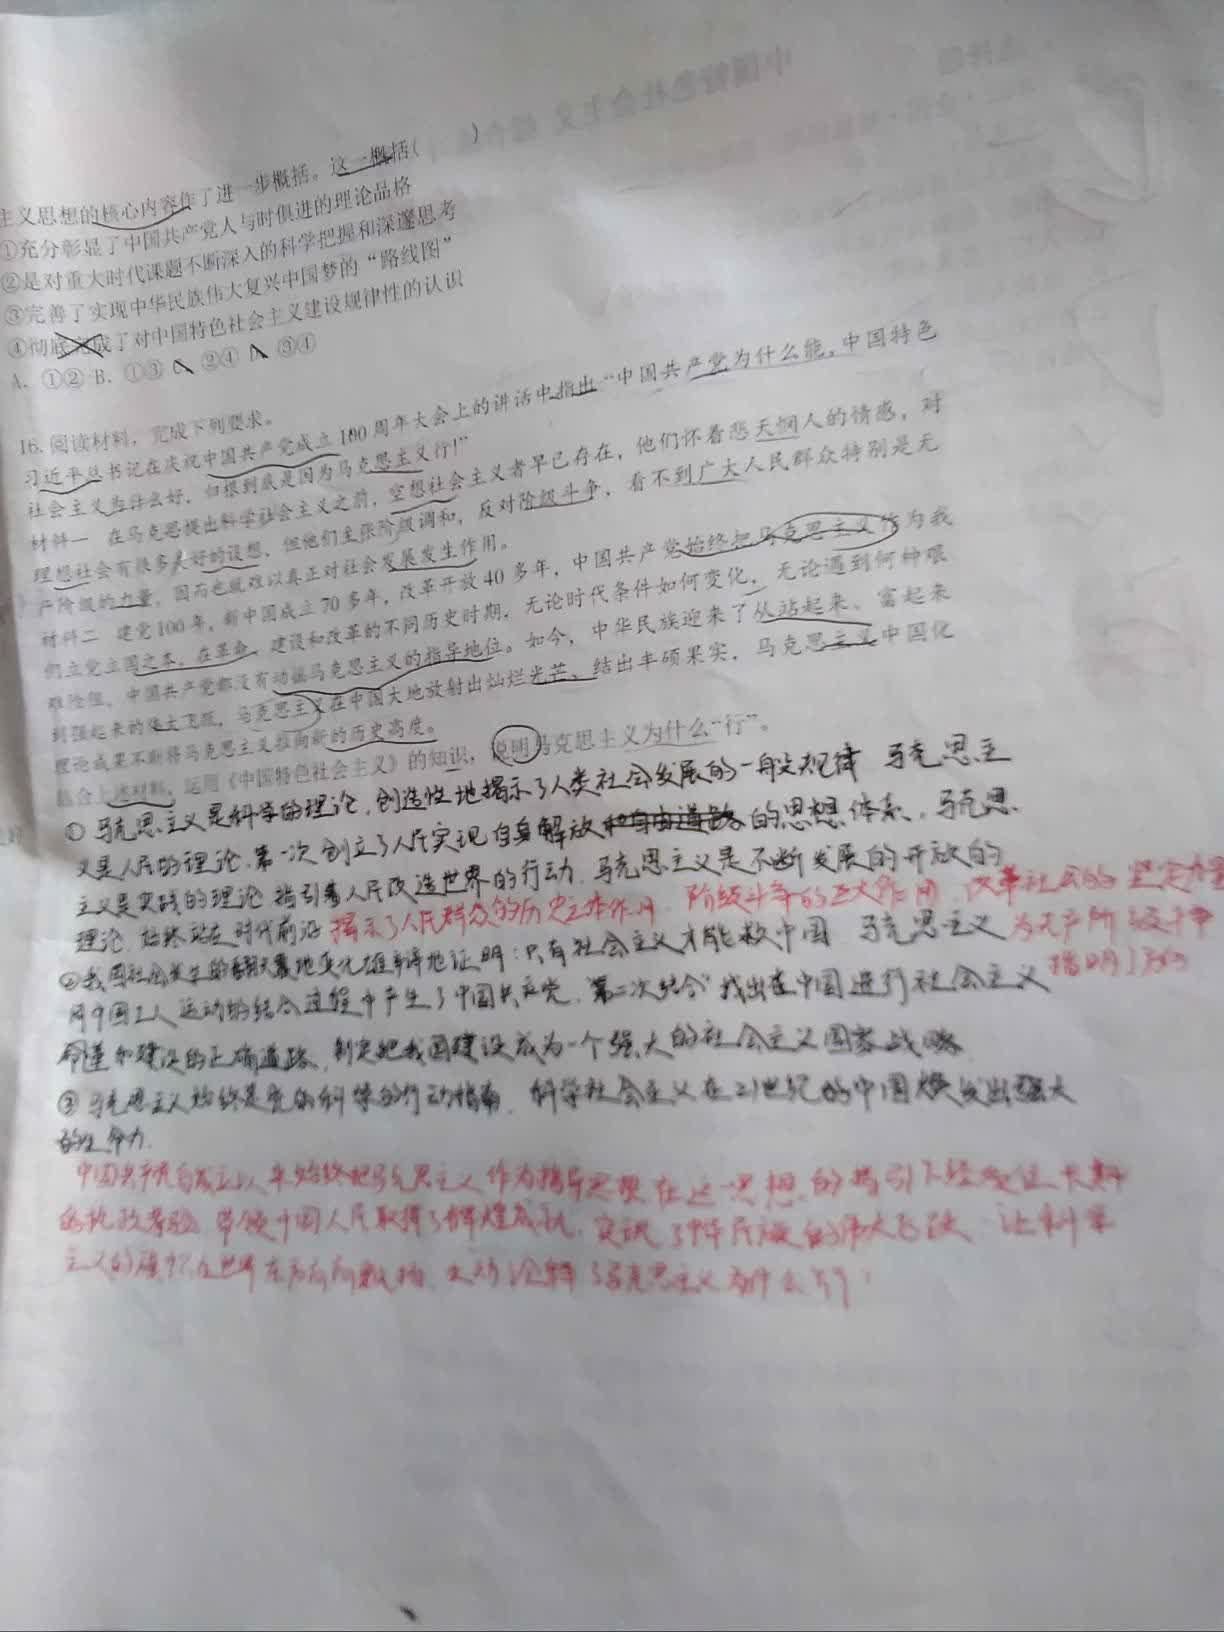 主义思想的核心内容作了进一步概括。这一概括( )
①充分彰显了中国共产党人与时俱进的理论品格
②是对重大时代课题不断深入的科学把握和深邃思考
③完善了实现中华民族伟大复兴中国梦的“路线图”
④彻底完成了对中国特色社会主义建设规律性的认识
A. ①② B. ①③ C. ②④ D. ③④
16. 阅读材料，完成下列要求。
习近平总书记在庆祝中国共产党成立100周年大会上的讲话中指出“中国共产党为什么能，中国特色
社会主义为什么好，归根到底是因为马克思主义行!”
材料一 在马克思提出科学社会主义之前，空想社会主义者早已存在，他们怀着悲天悯人的情感，对
理想社会有很多美好的设想，但他们主张阶级调和，反对阶级斗争，看不到广大人民群众特别是无
产阶级的力量，因而也就难以真正对社会发展发生作用。
材料二 建党100年，新中国成立70多年，改革开放40多年，中国共产党始终把马克思主义作为我
们立党立国之本。在革命、建设和改革的不同历史时期，无论时代条件如何变化，无论遇到何种艰
难险阻，中国共产党都没有动摇马克思主义的指导地位。如今，中华民族迎来了从站起来、富起来
到强起来的伟大飞跃，马克思主义在中国大地放射出灿烂光芒、结出丰硕果实，马克思主义中国化
理论成果不断将马克思主义推向新的历史高度。
结合上述材料，运用《中国特色社会主义》的知识，说明马克思主义为什么“行”。
① 马克思主义是科学的理论，创造性地揭示了人类社会发展的一般规律 马克思主
义是人民的理论，第一次创立了人民实现自身解放和自由道路的思想体系，马克思
主义是实践的理论 指引着人民改造世界的行动，马克思主义是不断发展的开放的
理论，始终站在时代前沿 揭示了人民群众的历史主体作用，阶级斗争的巨大作用，改革社会的坚定力量
为无产阶级斗争
指明了方向
②我国社会发生的翻天覆地变化雄辩地证明：只有社会主义才能救中国 马克思主义
同中国工人运动的结合过程中产生了中国共产党，“第二次结合”找出在中国进行社会主义
革命和建设的正确道路，制定把我国建设成为一个强大的社会主义国家战略
③ 马克思主义始终是党的科学的行动指南，科学社会主义在21世纪的中国焕发出强大
的生命力.
中国共产党自成立以来始终把马克思主义作为指导思想 在这一思想的指引下经受住长期
的执政考验，带领中国人民取得了辉煌成就，实现了中华民族的伟大飞跃，让科学
主义的旗帜在世界东方高高飘扬，生动诠释了马克思主义为什么行！